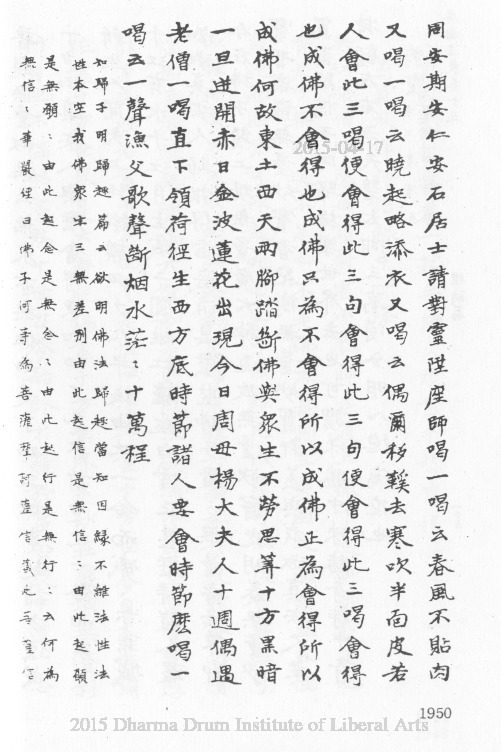 周安期安仁安石居士請對靈陞座師喝一喝云春風不貼肉
又喝一喝云曉起略添衣又喝云偶爾移鞵去寒吹半面皮若
人會此三喝便會得此三句會得此三句便會得此三喝會得
也成佛不會得也成佛只為不會得所以成佛正為會得所以
成佛何故東土西天兩腳踏斷佛與眾生不勞思筭十方黑暗
一旦迸開赤日金波蓮花出現今日周母楊大夫人十週偶遇
老僧一喝直下領荷徑生西方底時節諸人要會時節麼喝一
喝云一聲漁父歌聲斷烟水茫〻十萬程
知歸子明歸趣篇云欲明佛法歸趣當知因緣不離法性法
性本空我佛眾生三無差別由此起信是無信〻由此起願
是無願〻由此起念是無念〻由此起行是無行〻云何為
無信〻華嚴經曰佛子何等為菩薩摩訶薩
2015-04-17
1950
2015 Dharma Drum Institute of Liberal Arts